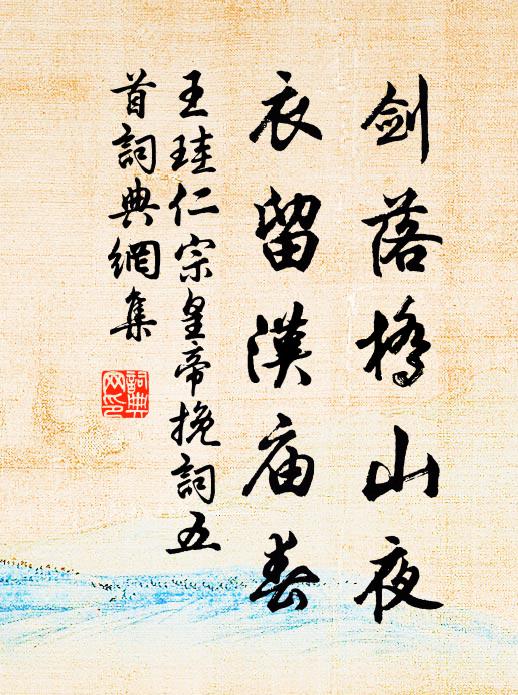 剑落桥山夜
衣留漢庙春
王珪仁宗皇帝挽詞五
首詞典網集
詞典
网印